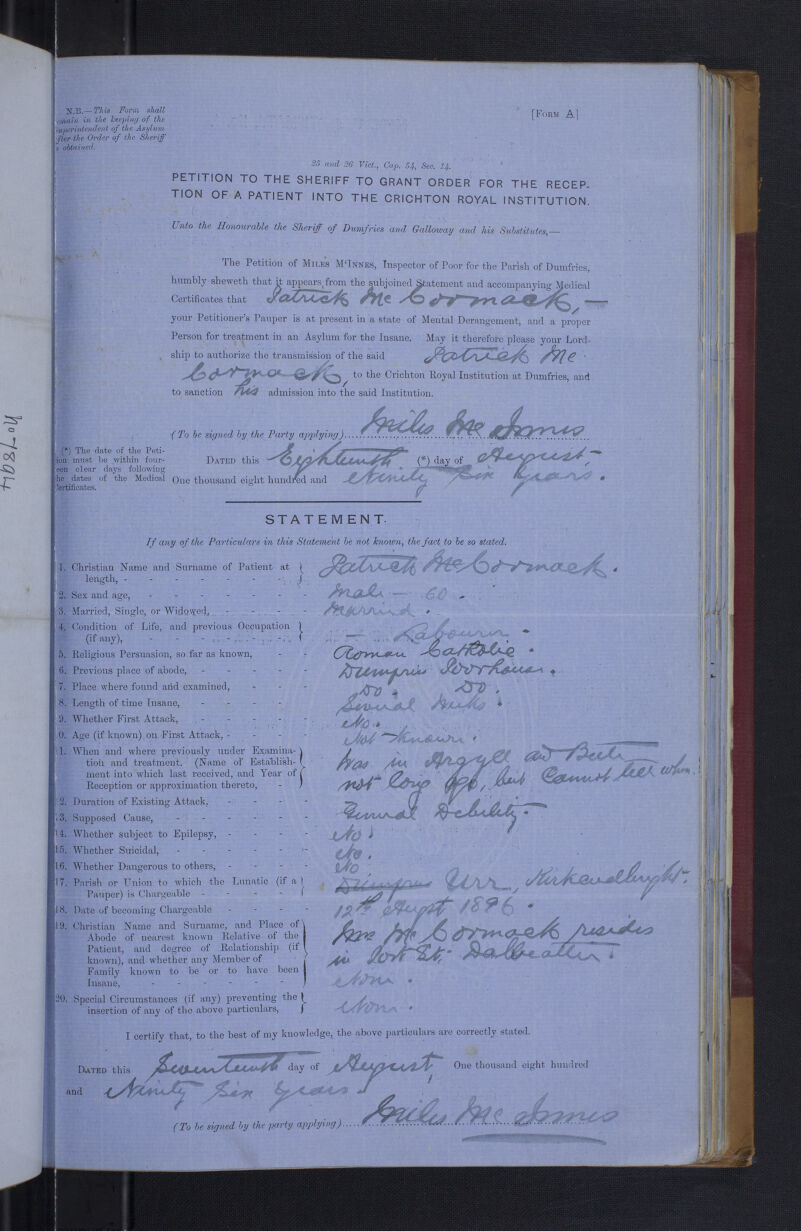 N.B.—This Form shall
remain in the keeping of the
Superintendent of the Asylum
after the Order of the Sheriff
is obtained.
[Form A]
25 and 26 Vict., Cap. 54, Sec. 14.
PETITION TO THE SHERIFF TO GRANT ORDER FOR THE RECEP-
TION OF A PATIENT INTO THE CRICHTON ROYAL INSTITUTION.
Unto the Honourable the Sheriff of Dumfries and Galloway and his Substitutes,—
The Petition of Miles M'Innes, Inspector of Poor for the Parish of Dumfries,
humbly sheweth that it appears from the subjoined Statement and accompanying Medical
Certificates that Patrick Mc Cormack, —
your Petitioner's Pauper is at present in a state of Mental Derangement, and a proper
Person for treatment in an Asylum for the Insane. May it therefore please your Lord-
ship to authorize the transmission of the said Patrick Mc
Cormack, to the Crichton Royal Institution at Dumfries, and
to sanction his admission into the said Institution.
(To be signed by the Party applying) Miles Mc Innes
(*) The date of the Peti-
tion must be within four-
teen clear days following
the dates of the Medical
Certificates.
Dated this Eighteenth (*) day of August
One thousand eight hundred and Ninity Six Years.
No 7894
STATEMENT.
If any of the Particulars in this Statement be not known, the fact to be so stated.
1. Christian Name and Surname of Patient at length, - Patrick McCormack.
2. Sex and age, - Male — 60.
3. Married, Single, or Widowed, - Married.
4. Condition of Life, and previous Occupation (if any), - — Labourer -
5. Religious Persuasion, so far as known, - Roman Catholic.
6. Previous place of abode, - Dumfries Poorhouse.
7. Place where found and examined, - Do. Do.
8. Length of time Insane, - Several Weeks.
9. Whether First Attack, - No.
10. Age (if known) on First Attack, - Not Known.
11. When and where previously under Examina-
tion and treatment. (Name of Establish-
ment into which last received, and Year of
Reception or approximation thereto, -
Was in Argyll and Bute
not long ago, but Cannot tell when.
12. Duration of Existing Attack, -
13. Supposed Cause, - General Debility.
14. Whether subject to Epilepsy, - No.
15. Whether Suicidal, - No.
16. Whether Dangerous to others, - No
17. Parish or Union to which the Lunatic (if a
Pauper) is Chargeable - Dumfries Urr, Kirkcudbright.
18. Date of becoming Chargeable 12th Augst 1896.
19. Christian Name and Surname, and Place of
Abode of nearest known Relative of the
Patient, and degree of Relationship (if
known), and whether any Member of
Family known to be or to have been
Insane, -
Mrs Mc Cormack resides
in Port St. Dalbeattie.
None.
20. Special Circumstances (if any) preventing the
insertion of any of the above particulars, None.
I certify that, to the best of my knowledge, the above particulars are correctly stated.
Dated this Seventeenth day of August, One thousand eight hundred
and Ninity Six Years.
(To be signed by the party applying) Miles Mc Innes